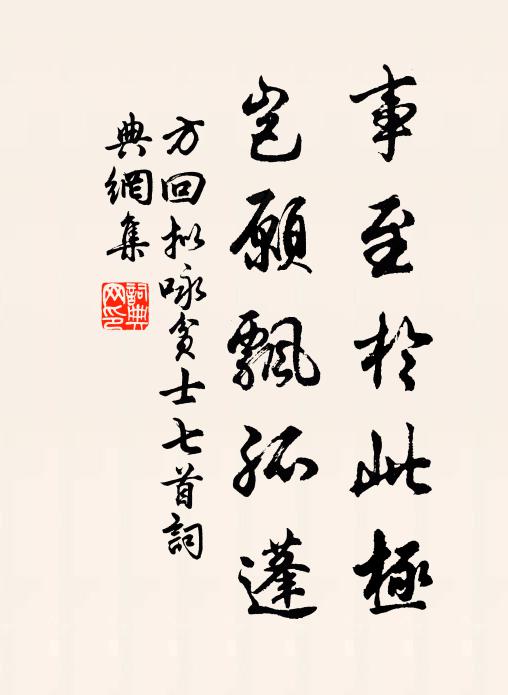 事至於此極
豈願飄孤蓬
方回拟咏貧士七首詞
典網集
詞典
网印